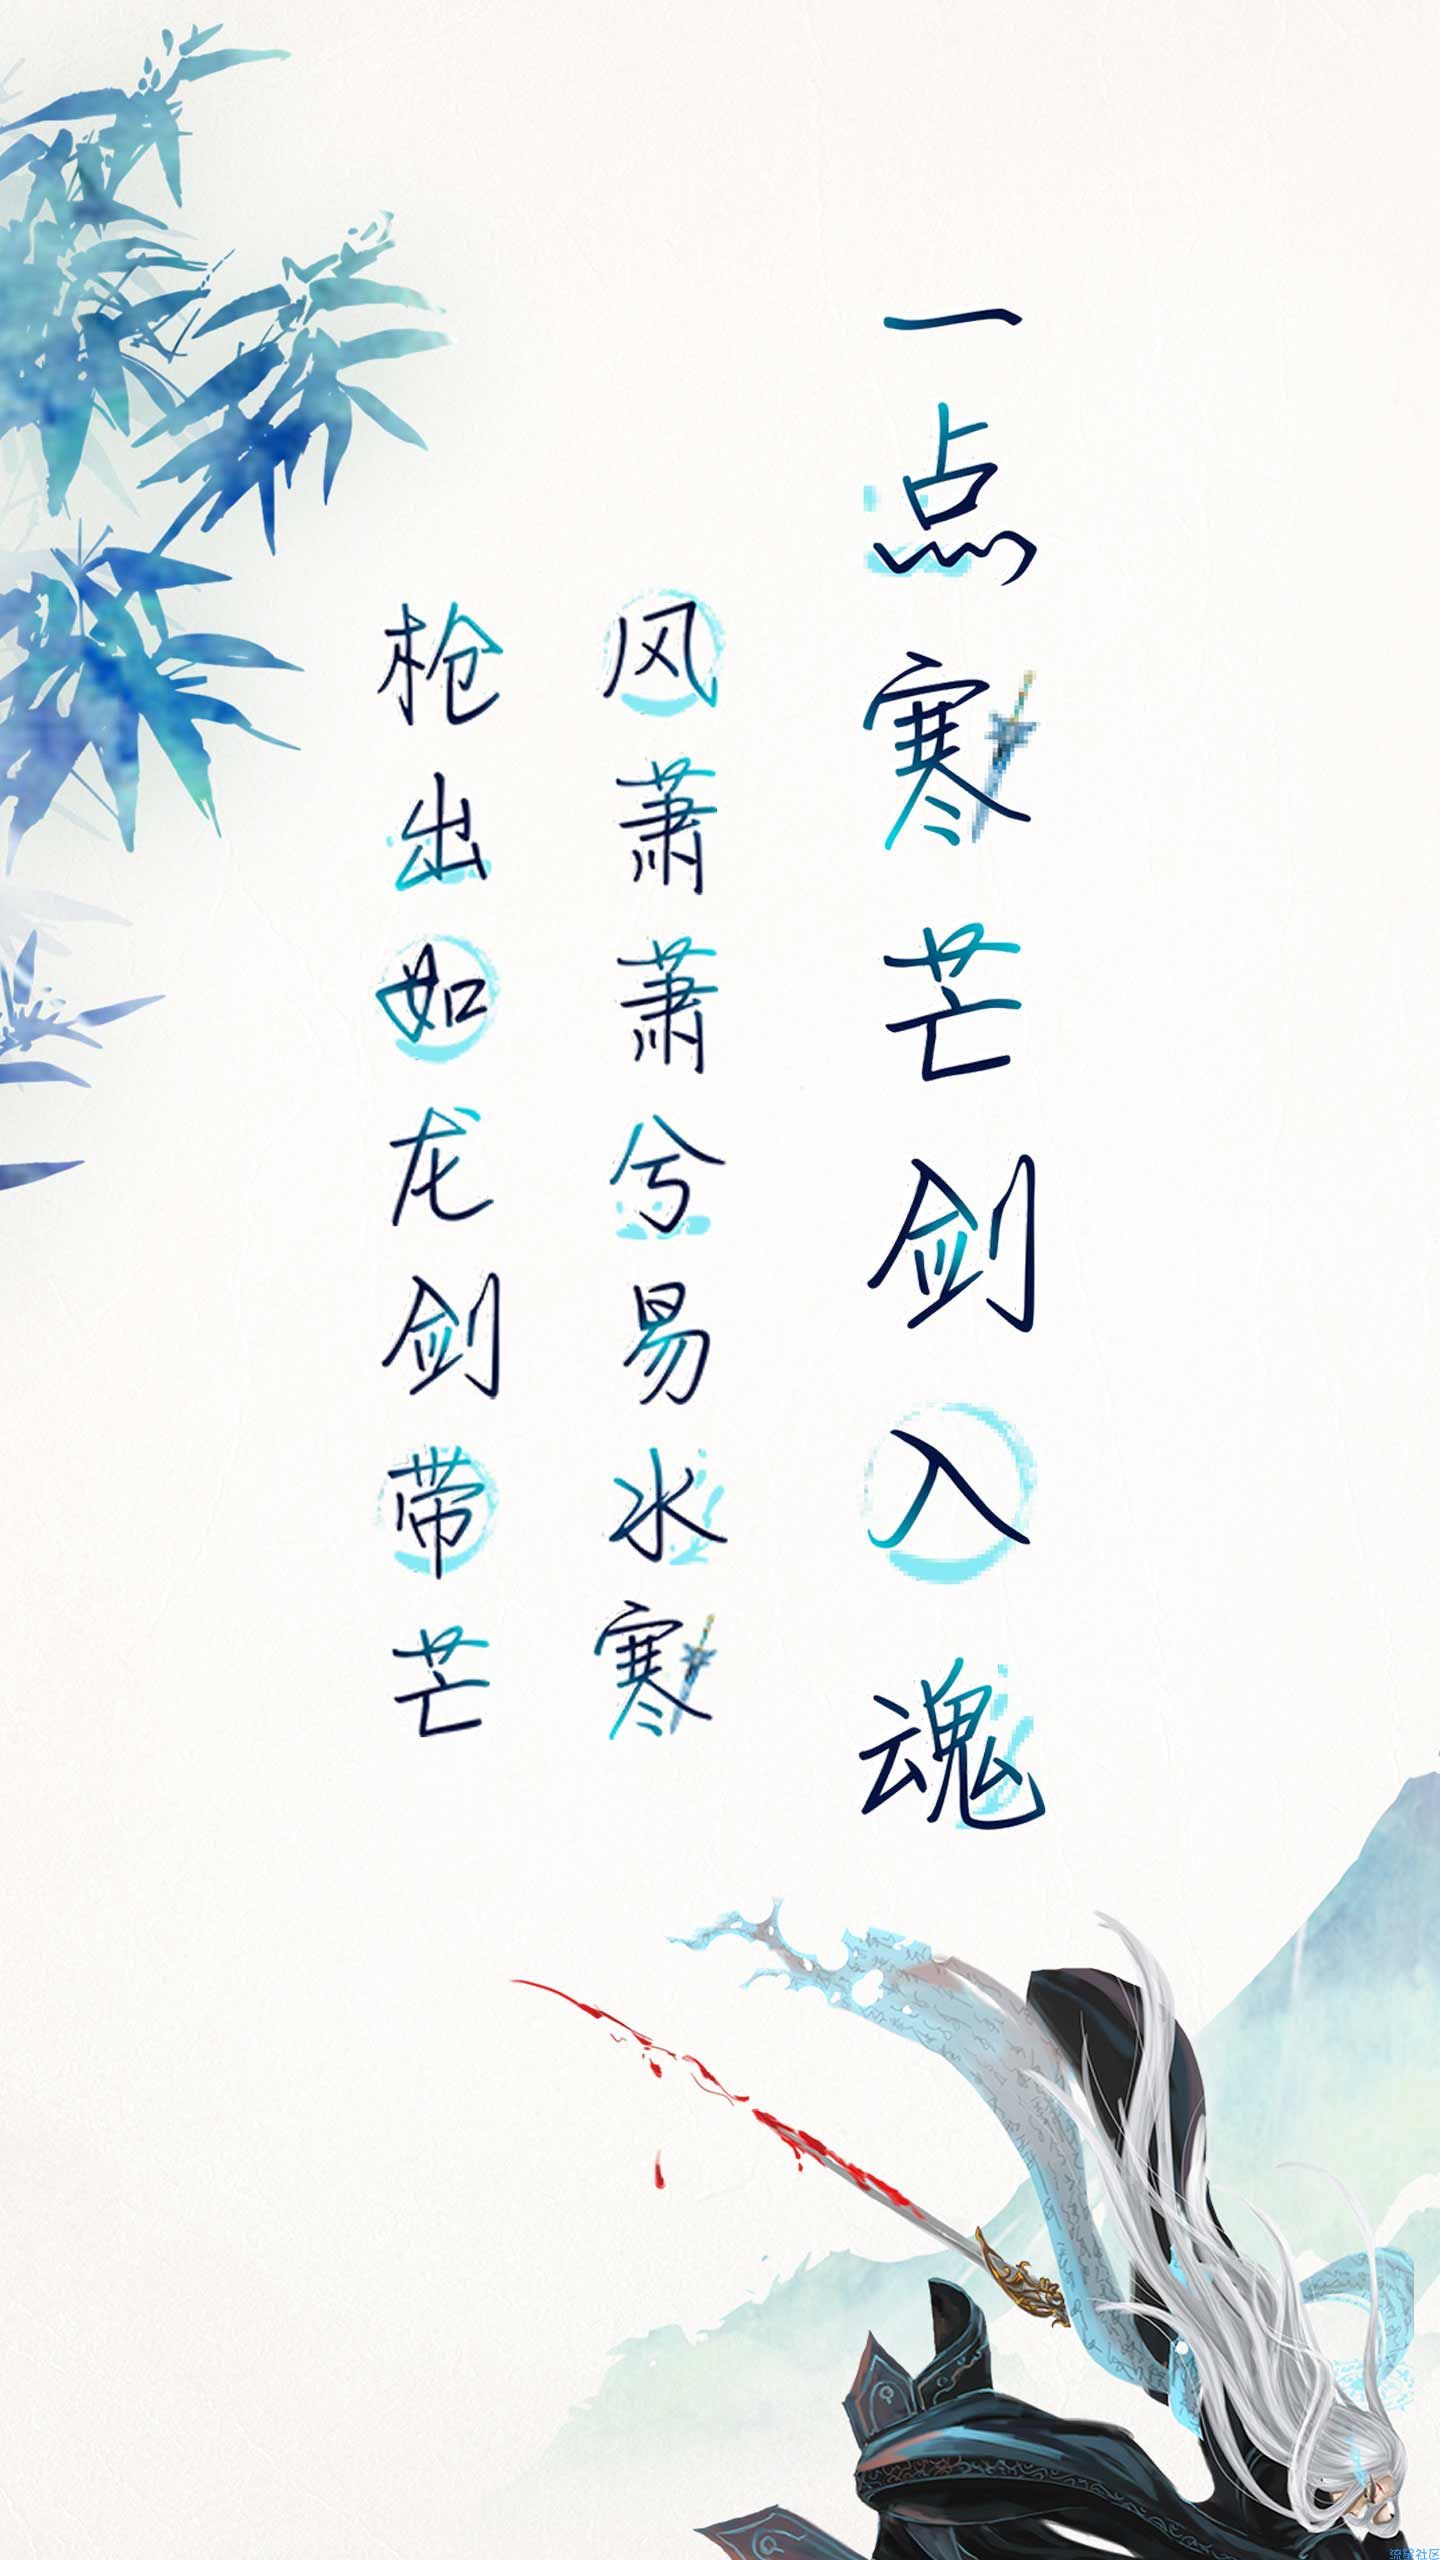 一点寒芒剑入魂
风萧萧兮易水寒
枪出如龙剑带芒
流星社区